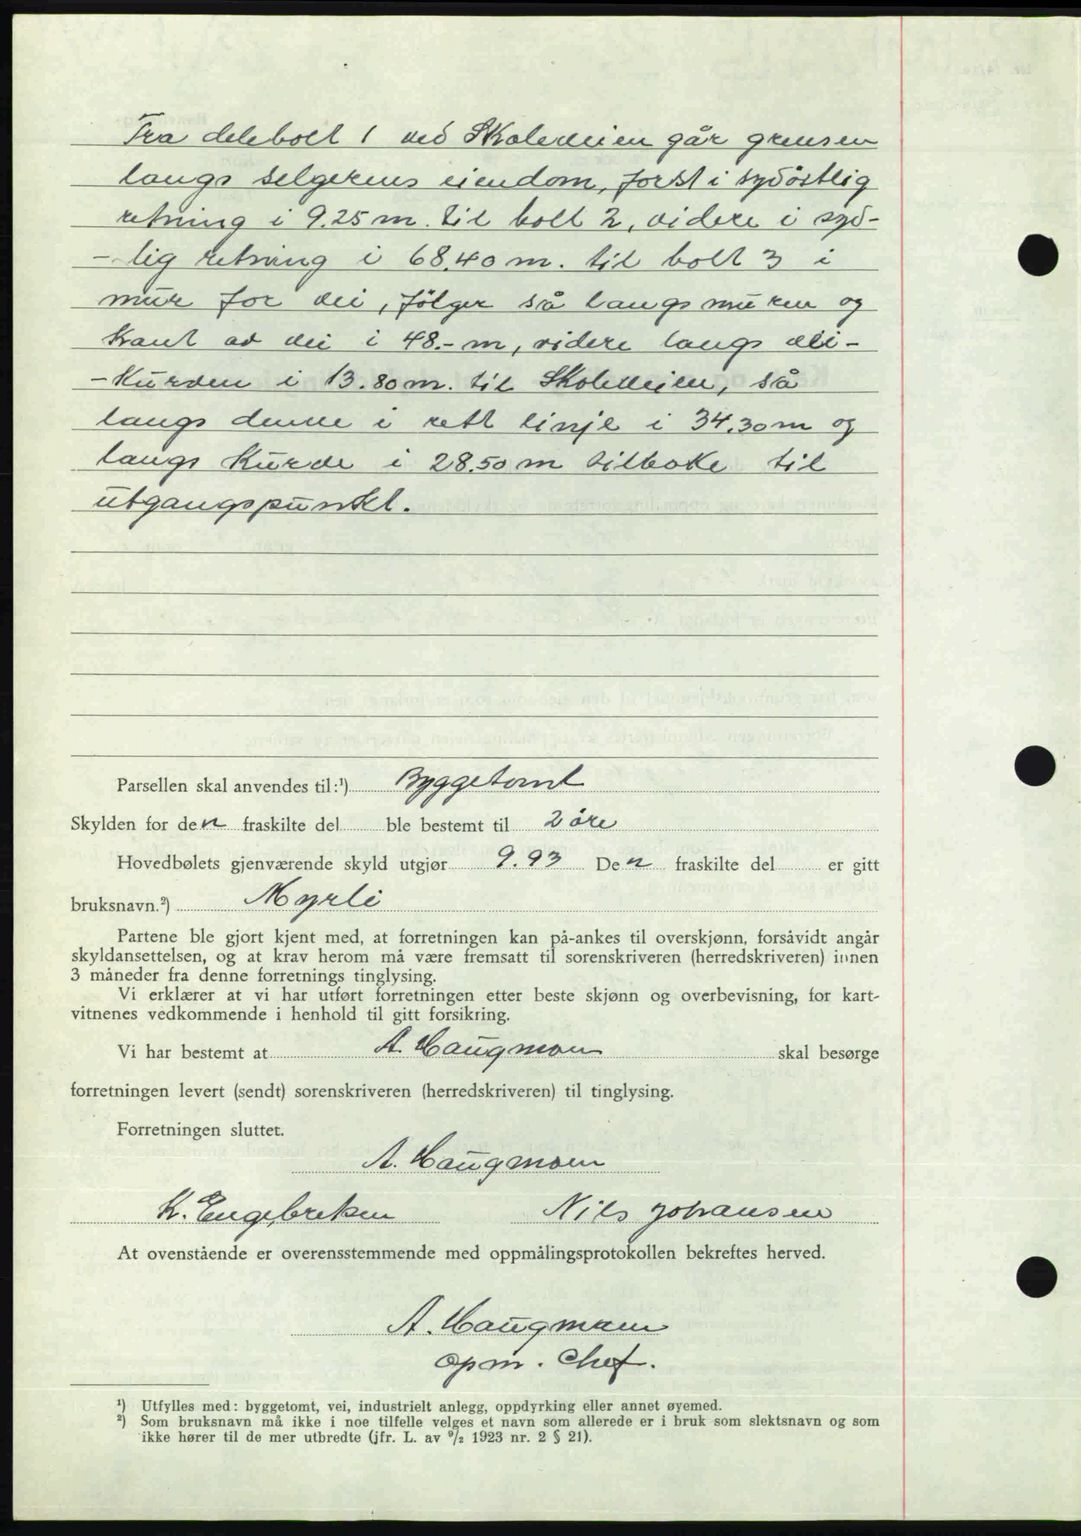 Fra delebolt 1 ved Skoleveien går grensen
langs selgerens eiendom, först i sydöstlig
retning i 9.25 m. til bolt 2, videre i syd-
- lig retning i 68.40 m. til bolt 3 i
mur for vei, fölger så langs muren og
kant av vei i 48.- m, videre langs vei-
- kurven i 13.80 m. til Skoleveien, så
langs denne i rett linje i 34.30 m og
langs kurve i 28.50 m tilbake til
utgangspunktet.
Parsellen skal anvendes til:¹) Byggetomt
Skylden for den fraskilte del ble bestemt til 2 öre
Hovedbølets gjenværende skyld utgjør 9.93 Den fraskilte del er gitt
bruksnavn.²) Myrli
Partene ble gjort kjent med, at forretningen kan på-ankes til overskjønn, forsåvidt angår
skyldansettelsen, og at krav herom må være fremsatt til sorenskriveren (herredskriveren) innen
3 måneder fra denne forretnings tinglysing.
Vi erklærer at vi har utført forretningen etter beste skjønn og overbevisning, for kart-
vitnenes vedkommende i henhold til gitt forsikring.
Vi har bestemt at A. Haugmoen skal besørge
forretningen levert (sendt) sorenskriveren (herredskriveren) til tinglysing.
Forretningen sluttet.
A. Haugmoen
K. Engebretsen Nils Johansen
At ovenstående er overensstemmende med oppmålingsprotokollen bekreftes herved.
A. Haugmoen
opm. Chef.
¹) Utfylles med: byggetomt, vei, industrielt anlegg, oppdyrking eller annet øyemed.
²) Som bruksnavn må ikke i noe tilfelle velges et navn som allerede er i bruk som slektsnavn og som
ikke hører til de mer utbredte (jfr. L. av ⁹/₂ 1923 nr. 2 § 21).